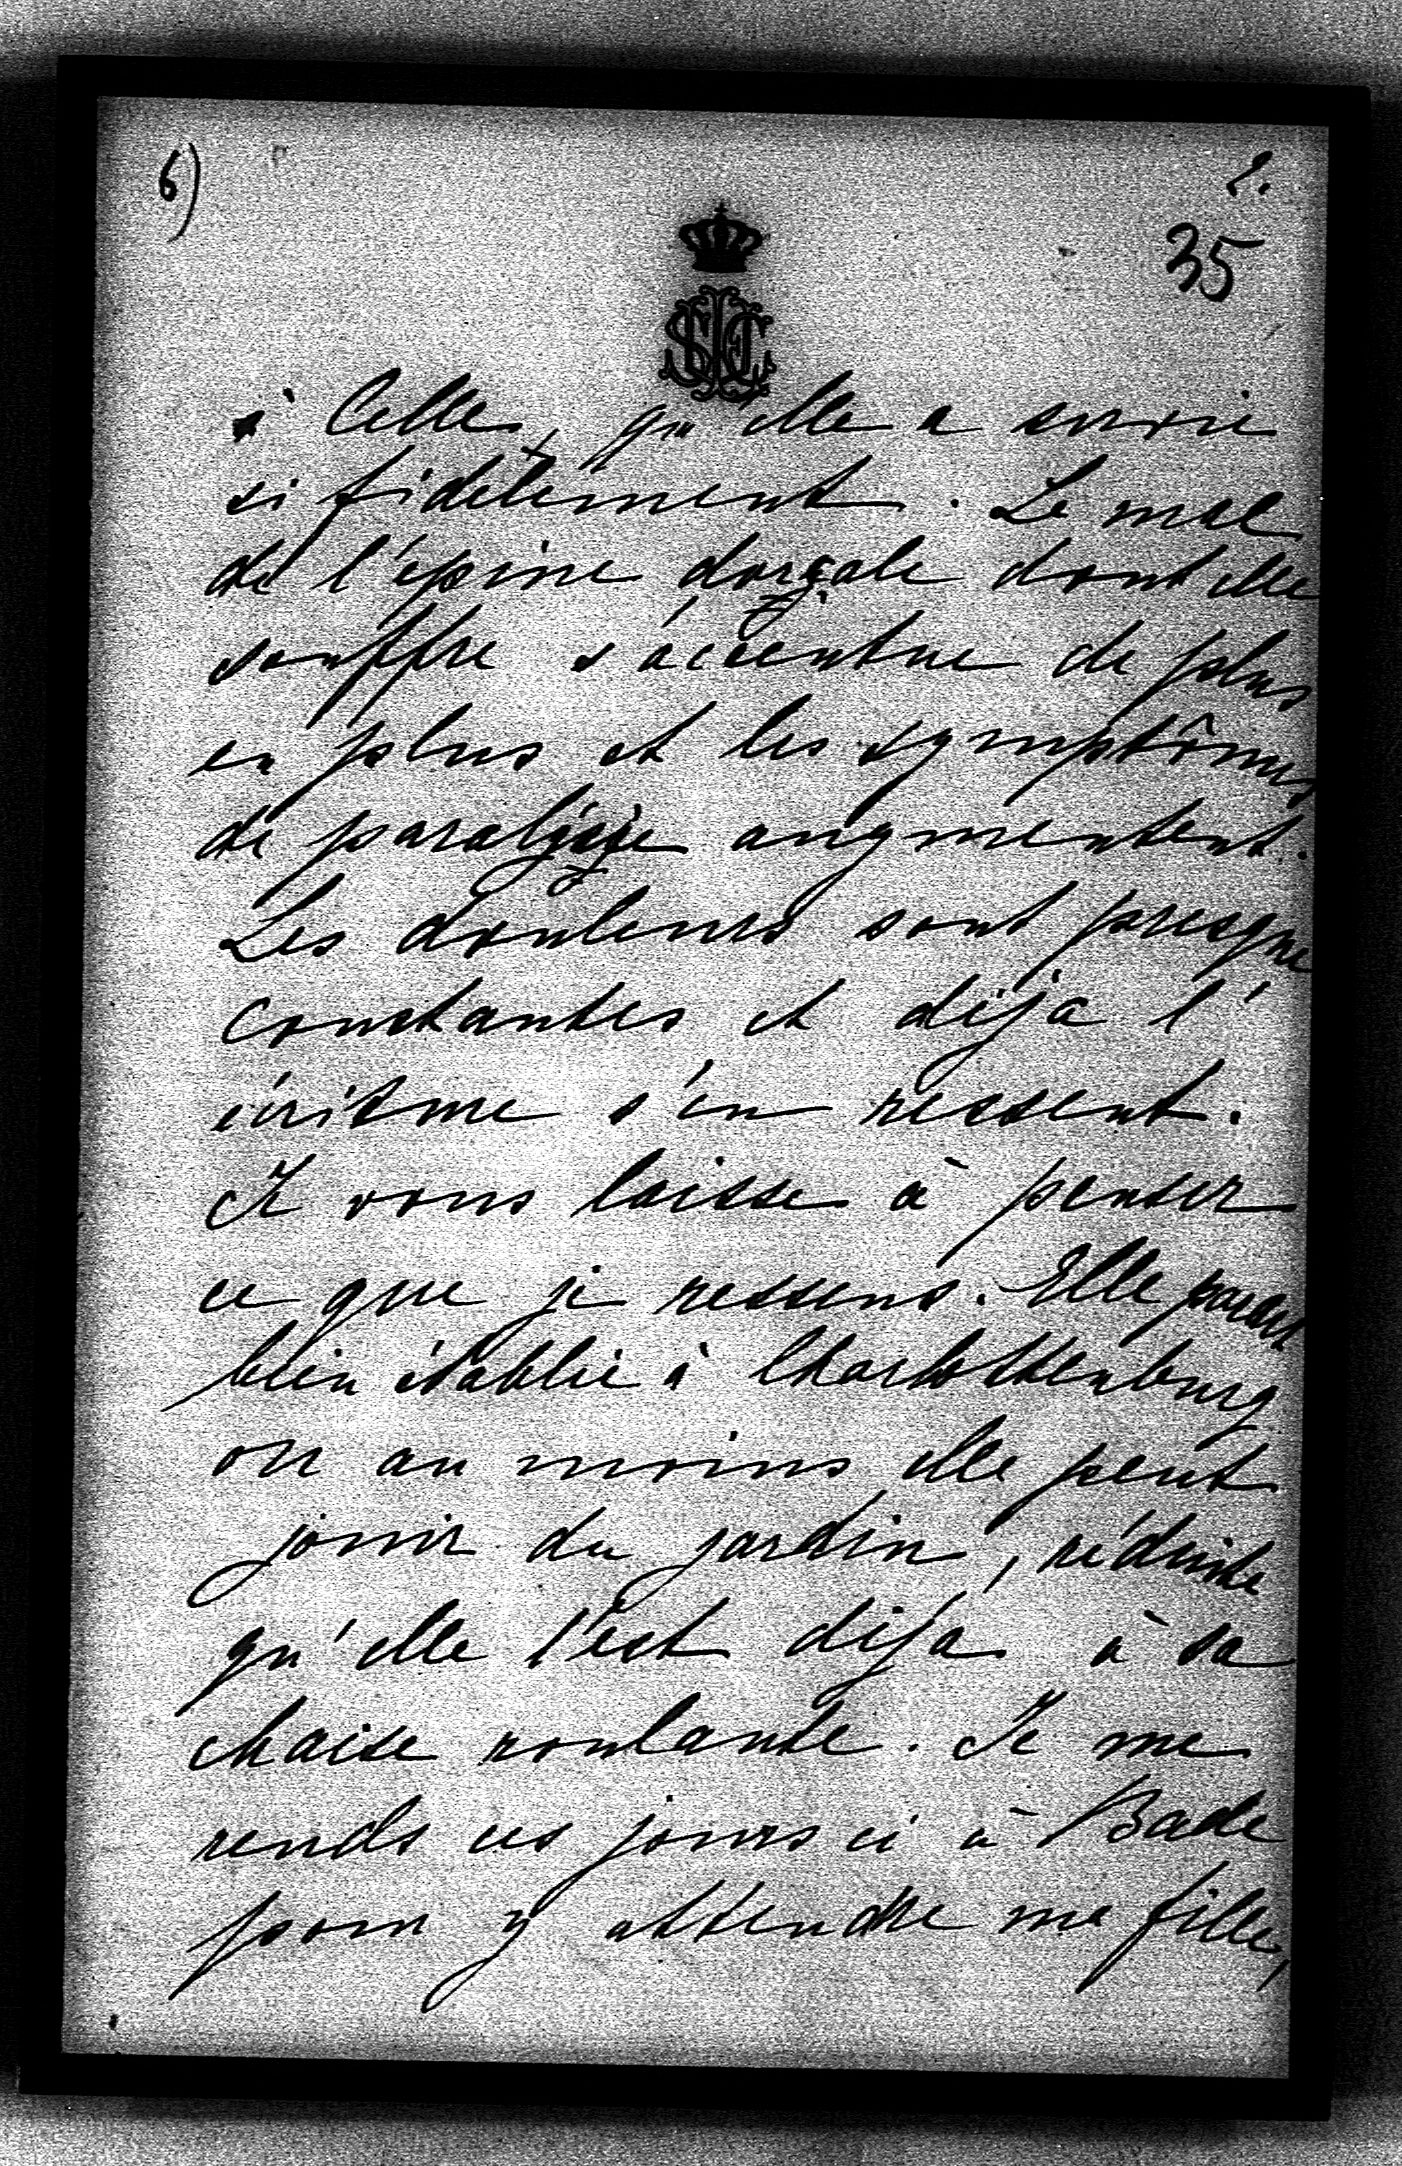 6)
2.
35
à Celle, qu'elle a servie
si fidèlement. Le mal
de l'épine dorsale dont elle
souffre s'accentue de plus
en plus et les symptômes
de paralysie augmentent.
Les douleurs sont presque
constantes et déja l'
s'en ressent.
Je vous laisse à penser
ce que je ressens. Elle parait
bien établie à Charlottenburg
ou au moins elle peut
jouir du jardin, réduite
qu'elle l'est déja à sa
chaise roulante. Je me
rends ces jours ci à Bade
pour y attendre ma fille,